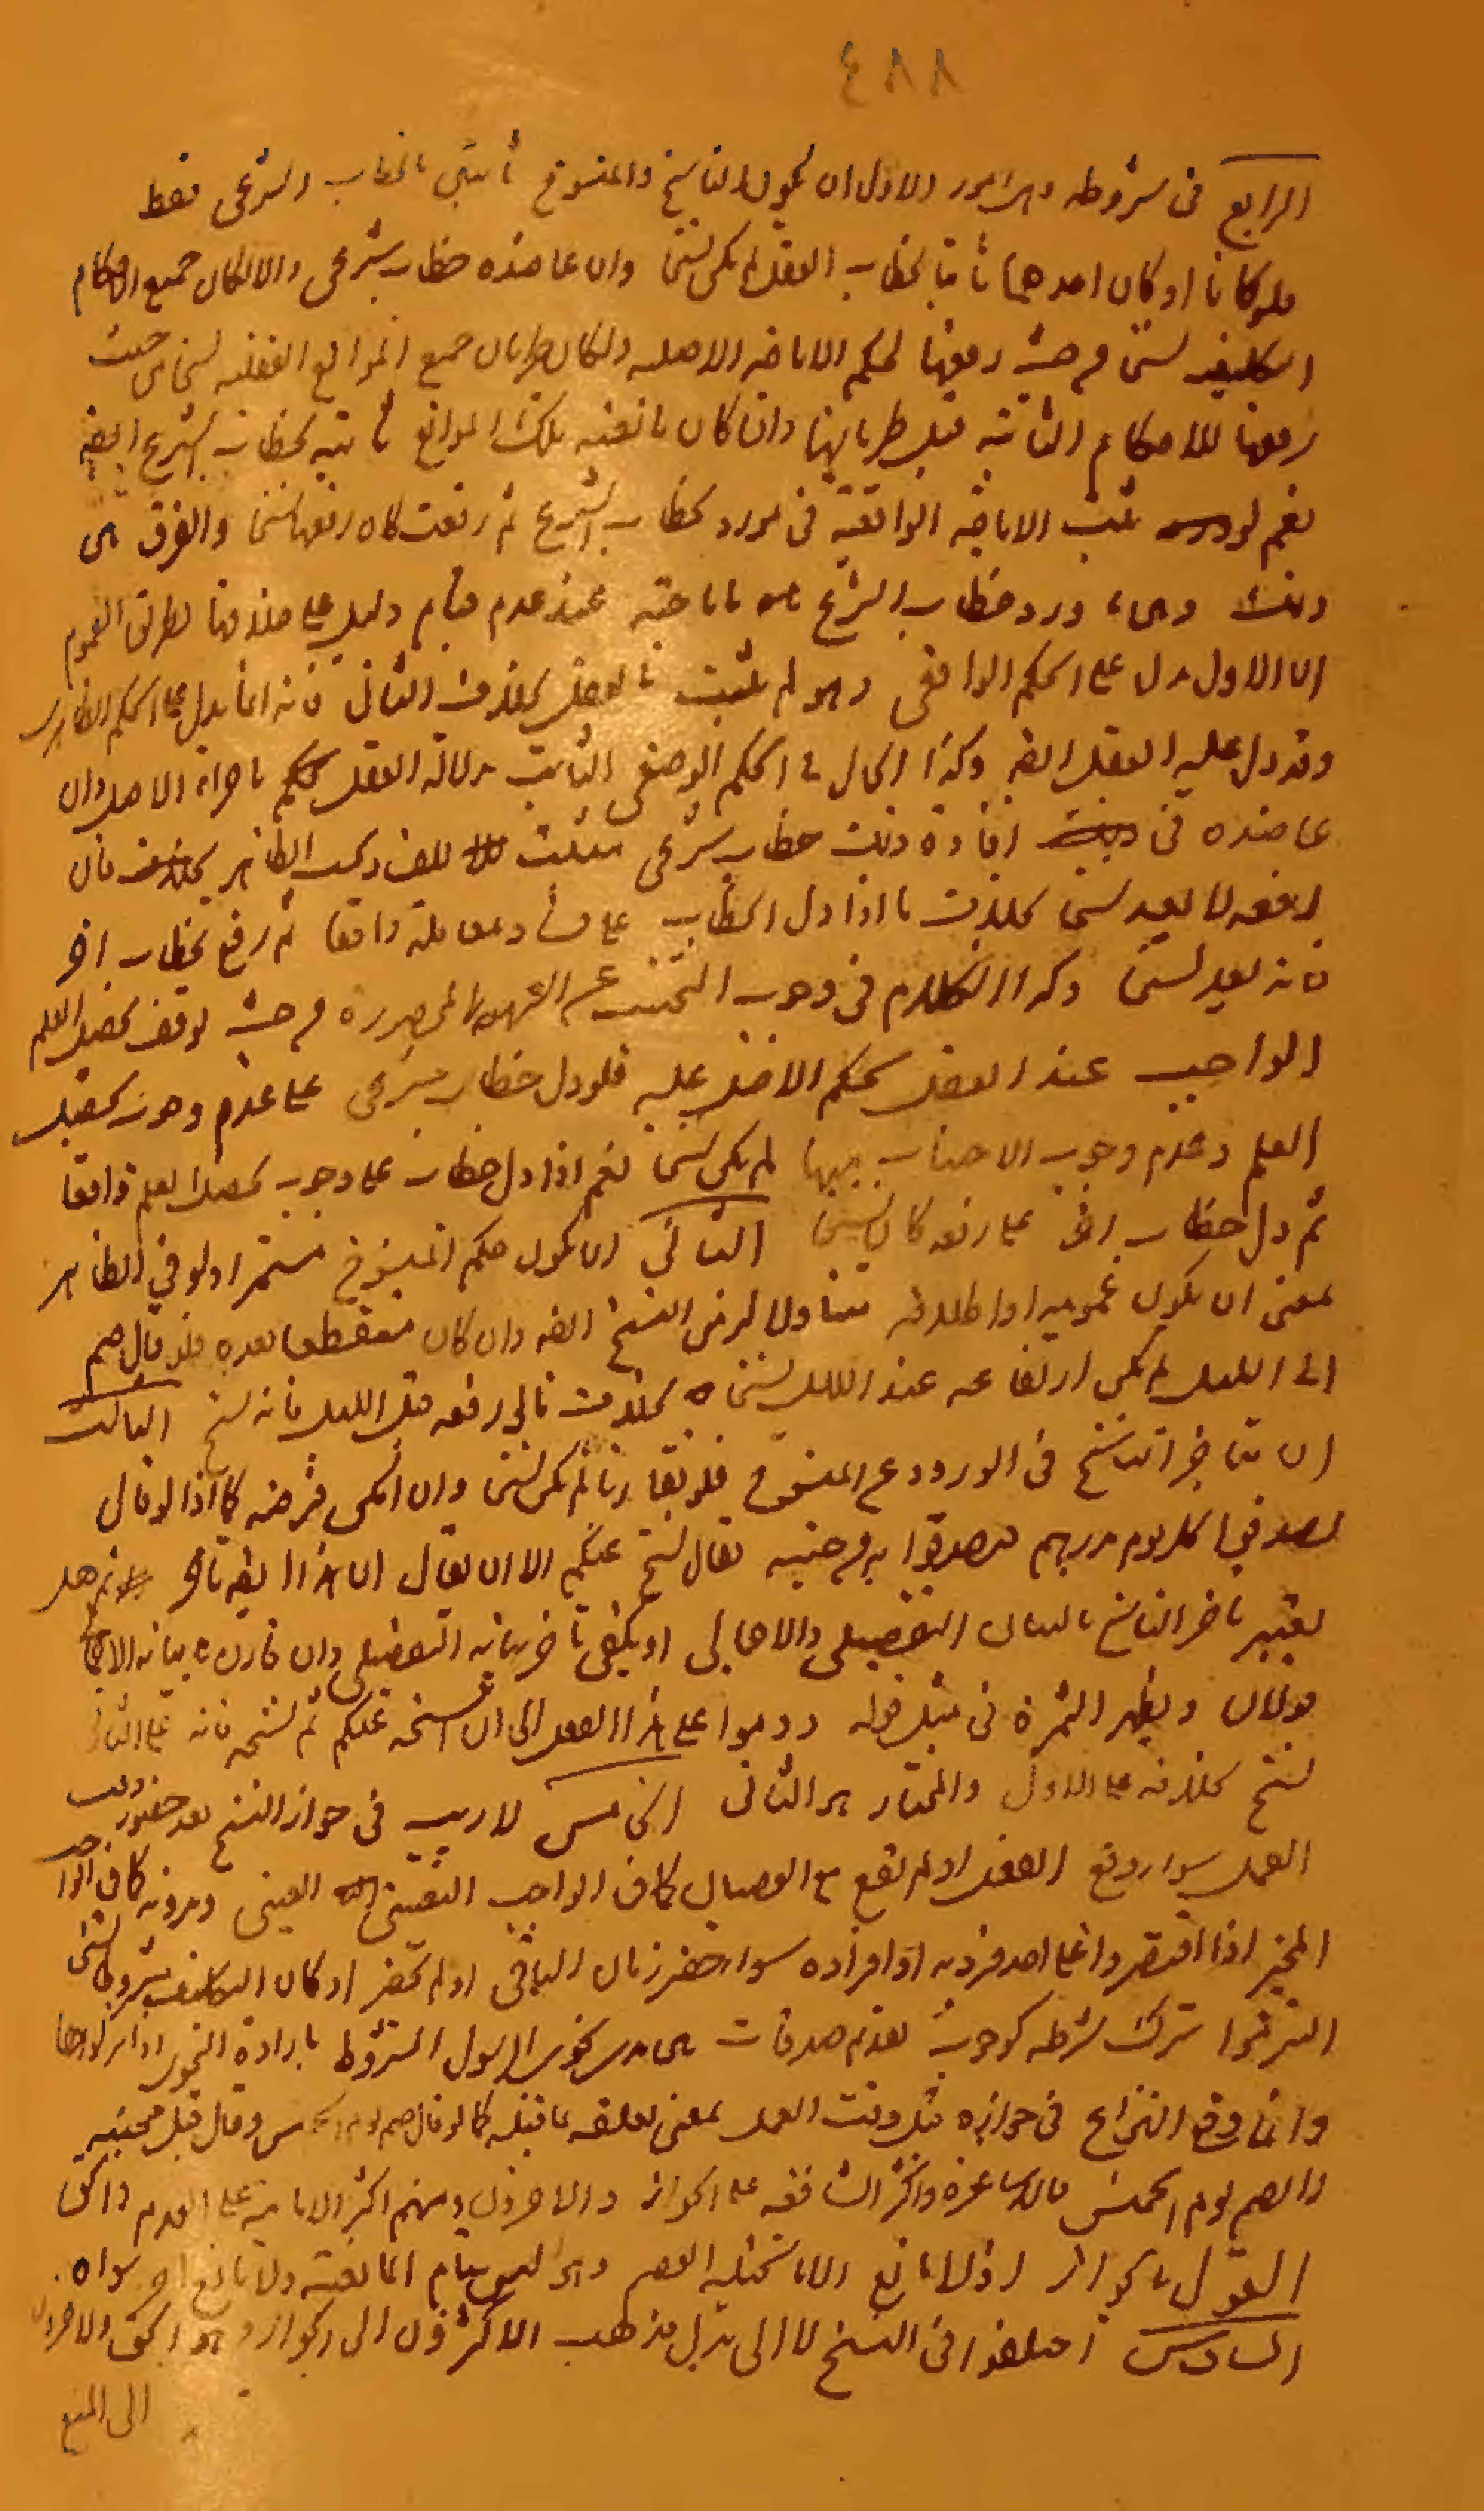 ٤٨٨
الرابع في شروطه وهي امور الاول ان يكون الناسخ والمنسوخ ثابتين بالخطاب الشرعي فقط
فلو كانا او كان احدهما ثابتا بخطاب العقل لم يكن نسخا وان عاضده خطاب شرعي والا لكان جميع الاحكام
التكليفية نسخا من حيث رفعها لحكم الاباحة الاصلية ولكان طريان جميع الموانع العقلية نسخا من حيث
رفعها للاحكام الثابتة قبل طريانها وان كان مانعية تلك الموانع ثابتة بخطاب الشرع ايضا
نعم لو ثبت الاباحة الواقعية في مورد بخطاب الشرع ثم رفعت كان رفعها نسخا والفرق بين
ذلك وبين ورود خطاب الشرع باباحته عند عدم قيام دليل على خلافها بطريق العموم
ان الاول دل على الحكم الواقعي وهو لم يثبت بالعقل بخلاف الثاني فانه انما يدل على الحكم الظاهري
وقد دل عليه العقل ايضا وكذا الحال في الحكم الوضعي الثابت بدلالة العقل كحكم باجراء الاصل وان
عاضده في افادة ذلك خطاب شرعي مثبت للفساد بحسب الظاهر بخلافه فان
رفعه لا يعد نسخا بخلاف ما اذا دل الخطاب على فساد معاملة واقعا ثم رفع بخطاب اخر
فانه يعد نسخا وكذا الكلام في وجوب التجنب عن الشبهة المحصورة من حيث توقف تحصيل العلم
الواجب عند العقل بحكم الاضل عليه فلو دل خطاب شرعي على عدم وجوب تحصيل
العلم وعدم وجوب الاجتناب فيها لم يكن نسخا نعم اذا دل خطاب على وجوب تحصيل العلم واقعا
ثم دل خطاب اخر على رفعه كان نسخا الثاني ان يكون حكم المنسوخ مستمرا ولو في الظاهر
بمعنى ان يكون عمومه او اطلاقه متناولا لزمن النسخ ايضا وان كان منقطعا بعده فلو قال صم
الى الليل لم يكن ارتفاعه عند الليل نسخا بخلاف ما لو رفعه قبل الليل فانه نسخ الثالث
ان يتاخر الناسخ في الورود عن المنسوخ فلو تقارنا لم يكن نسخا وان امكن فرضه كما اذا لو قال
تصدقوا كل يوم بدرهم فتصدقوا به من حينه فقال نسخ عنكم الا ان يقال ان هذا ايضا تأخر ثم هل
يعتبر تاخر الناسخ بالبيان التفصيلي والاجمالي او يكفي تاخر بيانه التفصيلي وان قارن بيانه الاجمالي
قولان ويظهر الثمرة في مثل قوله دوموا على هذا الفعل الى ان انسخه عنكم ثم نسخه فانه على الثاني
نسخ بخلافه على الاول والمختار هو الثاني الخامس لا ريب في جواز النسخ بعد حضور وقت
العمل سواء وقع الفعل او لم يقع مع العصيان كما في الواجب التعييني العيني وبدونه كما في الواجب
المخير اذا اقتصروا على احد فرديه او افراده سواء حضر زمان الباقي او لم يحضر او كان التكليف مشروطا بشيء
التزموا بترك شرطه كوجوب تقديم صدقات بين يدي نجوى الرسول المشروط بارادة النجوى اذا تركوها
وانما وقع النزاع في جوازه قبل وقت العمل بمعنى تعلقه بما قبله كما لو قال صم يوم الخميس وقال قبل مجيئه
لا تصم يوم الخميس فالاشاعرة واكثر الشافعية على الجواز والاخرون ومنهم اكثر الامامية على العدم والحق
القول بالجواز اذ لا مانع الا ما تخيله الخصم وهو ليس بتام المانعية ولا مانع اخر سواه
السادس اختلفوا في النسخ لا الى بدل فذهب الاكثرون الى الجواز وهو الحق والاخرون
الى المنع